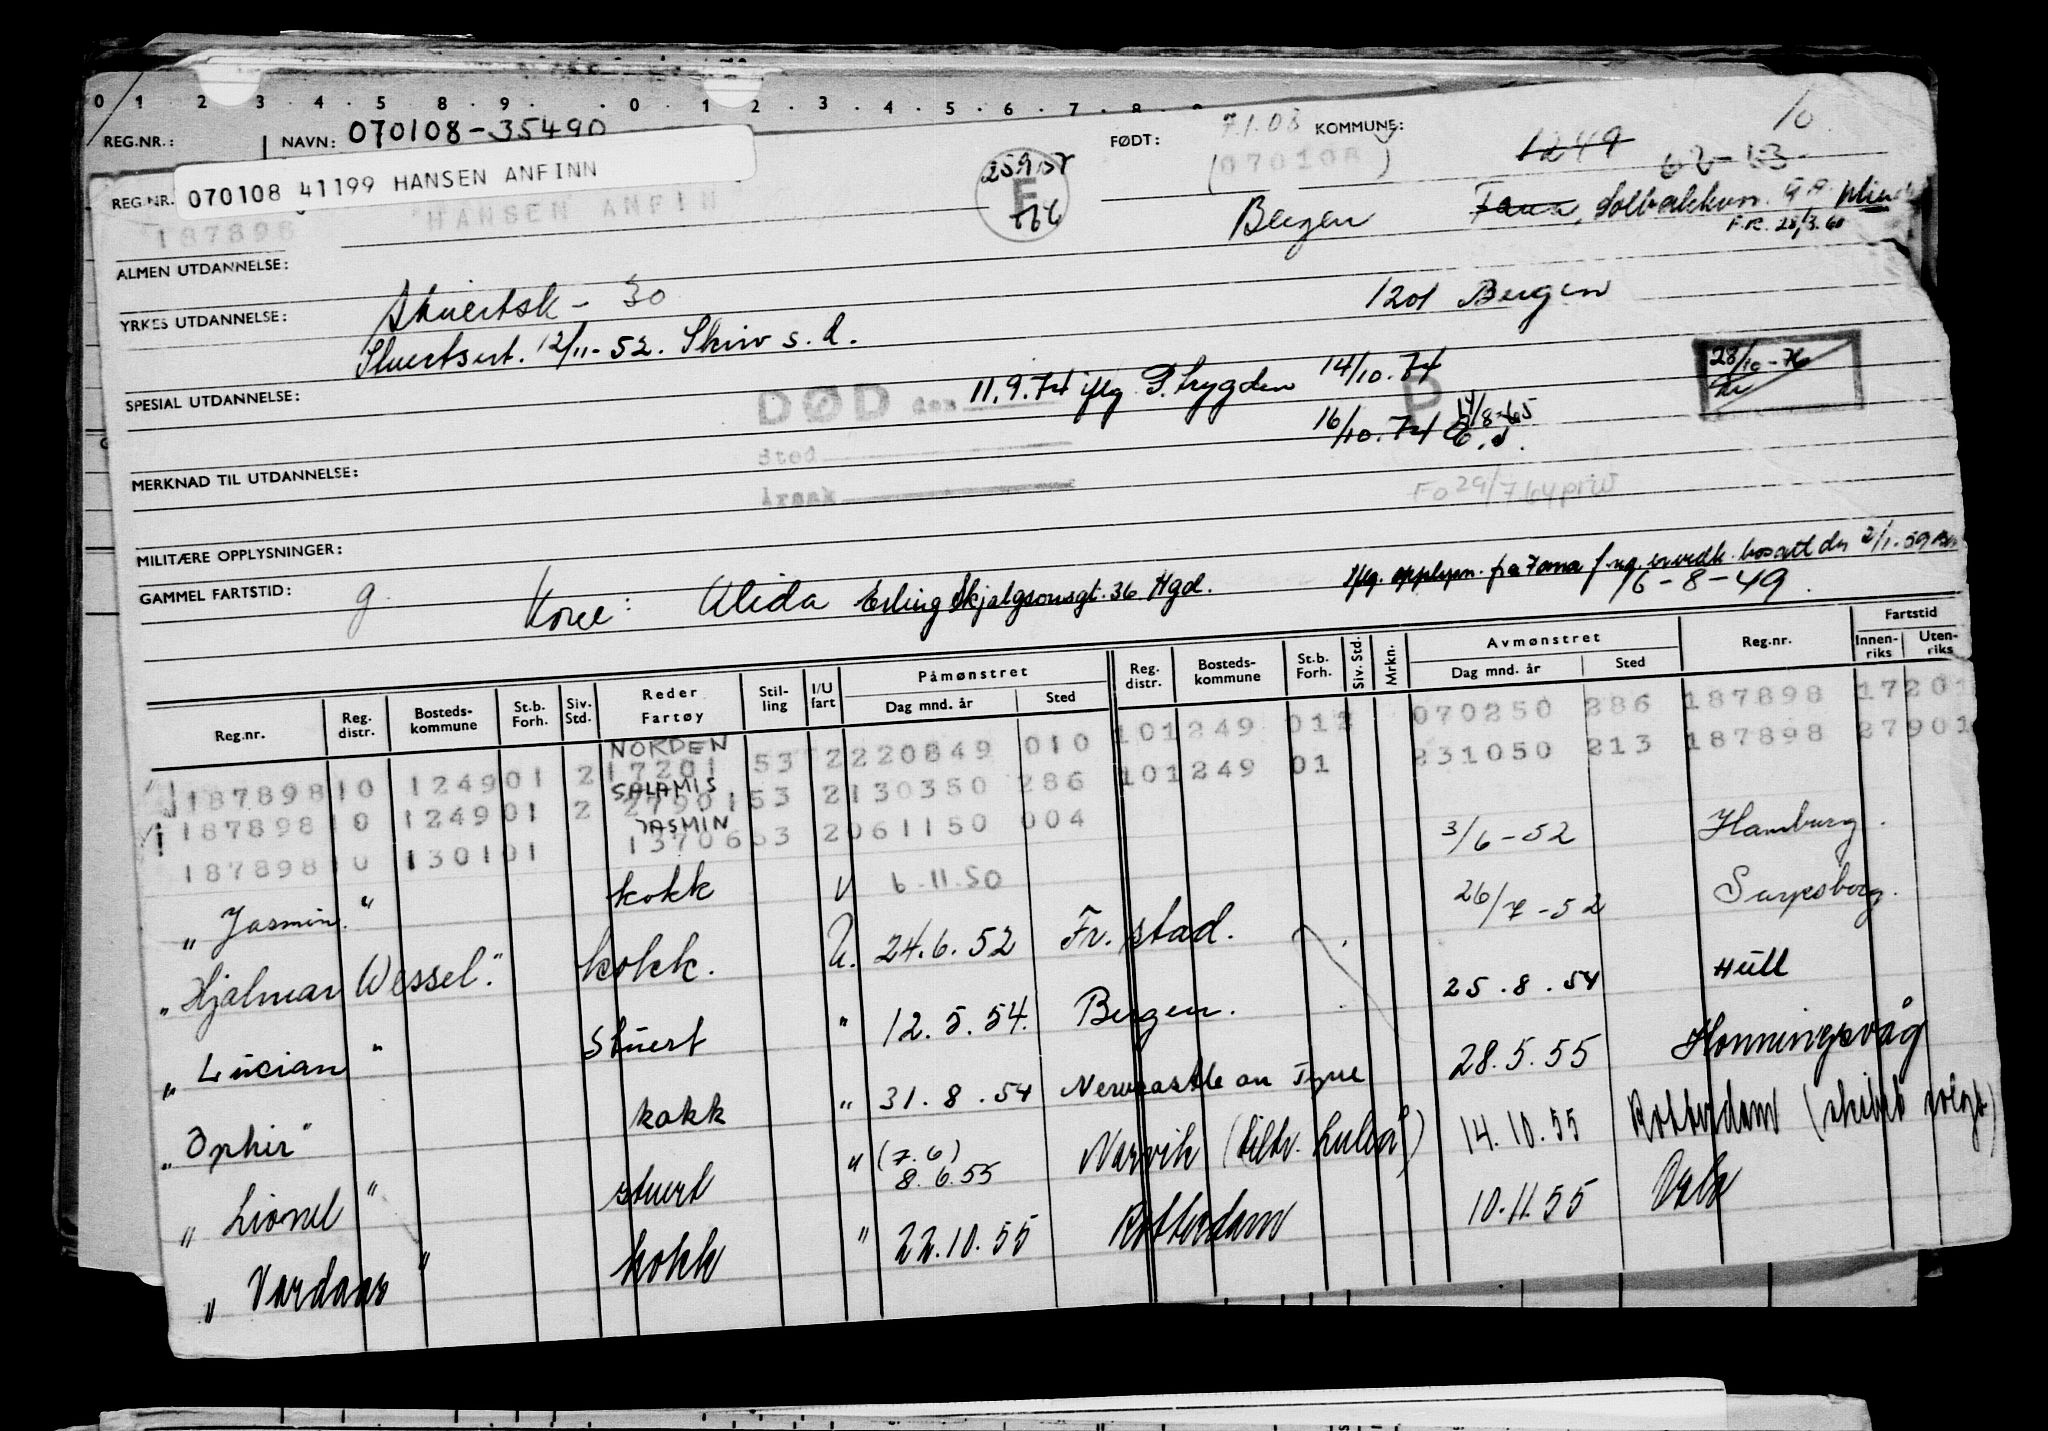 0 1 . 2 . 3 . 4 . 5 . 8 . 9 . . 0 . 1 2 . 3 . 4 . 5 . 6 . 7 . 8
REG.NR.: NAVN: 070108-35490 FØDT: 7.1.08 KOMMUNE: 1249 10
REG.NR. 070108 41199 HANSEN ANFINN 25957 (070108) 62-63
187898 HANSEN ANFIN F Bergen Fana, Solbakkvn.
F.R. 28/3.60
ALMEN UTDANNELSE:
YRKES UTDANNELSE: Stuertsk - 30 1201 Bergen
Stuertsert. 12/11-52. Skriv s.d.
SPESIAL UTDANNELSE: DØD den 11.9.74 iflg. P. trygden 14/10.74 D 28/10-76
Sted 16/10.74 17/8-65
MERKNAD TIL UTDANNELSE: Årsak Fo 29/7 64 priv
MILITÆRE OPPLYSNINGER:
GAMMEL FARTSTID: g. Kone: Alida Erling Skjalgsonsgt. 36 Hgd. Iflg. opplysn. fra Fana f.reg. bosatt der 2/1.59
16-8-49.
Reg.nr. Reg. distr. Bosteds- kommune St.b. Forh. Siv. Std. Reder Fartøy Stil- ling I/U fart Påmønstret Dag mnd. år Sted Reg. distr. Bosteds- kommune St.b. Forh. Siv. Std. Mrkn. Avmønstret Dag mnd. år Sted Reg.nr. Fartstid Innen- riks Uten- riks
NORDEN
187898 10 1249 01 2 17201 53 2 220849 010 10 1249 01 2 070250 286 187898 17201
SALAMIS
187898 10 1249 01 2 27901 53 2 130350 286 10 1249 01 231050 213 187898 27901
JASMIN
187898 10 1301 01 13706 53 2 061150 004
"Jasmin" kokk U 6.11.50 3/6-52 Hamburg.
"Hjalmar Wessel" kokk. U. 24.6.52 Fr.stad. 26/7-52 Sarpsborg.
"Lucian" Stuert " 12.5.54. Bergen. 25.8.54 Hull
"Ophir" kokk " 31.8.54 Newcastle on Tyne 28.5.55 Honningsvåg
"Lionel" stuert " (7.6) 8.6.55 Narvik (tiltr. Luleå) 14.10.55 Rotterdam (skibet solgt)
"Vardaas" kokk " 22.10.55 Rotterdam 10.11.55 Oslo